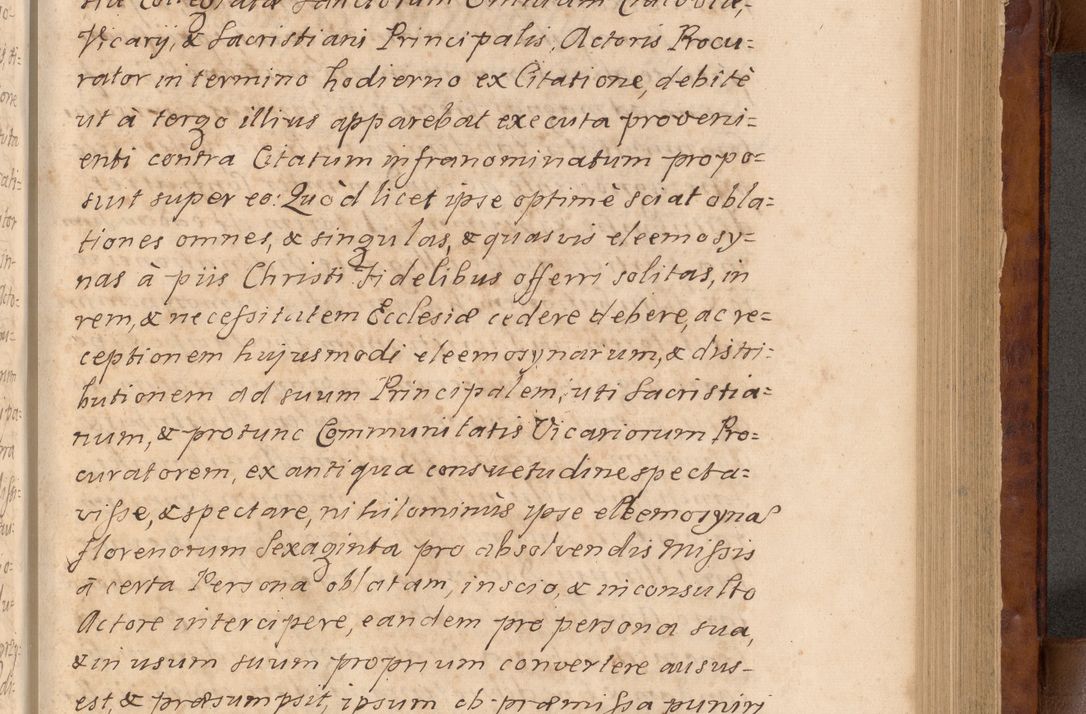 siæ Collegiatæ Sanctorum Omnium Cracoviæ,
Vicarij, & Sacristiani Principalis, Actoris Procu=
rator in termino hodierno ex Citatione, debitè
ut à tergo illius apparebat executa proveni=
enti contra Citatum infranominatum propo=
suit super eo: Quòd licet ipse optimè sciat obla=
tiones omnes, & singulas, & quasvis eleemosy=
nas à piis Christi Fidelibus offerri solitas, in
rem, & necessitatem Ecclesiæ cedere debere, ac re=
ceptionem hujusmodi eleemosynarum, & distri=
butionem ad suum Principalem, uti Sacristia=
num, & protunc Communitatis Vicariorum Pro=
curatorem, ex antiqua consvetudine specta=
visse, & spectare, nihilominùs ipse eleemosyna
florenorum Sexaginta pro absolvendis Missis
à certa Persona oblatam, inscio, & inconsulto
Actore intercipere, eandem pro persona sua,
& in usum suum proprium convertere ausus
est, & præsumpsit, ipsum ob præmissa puniri